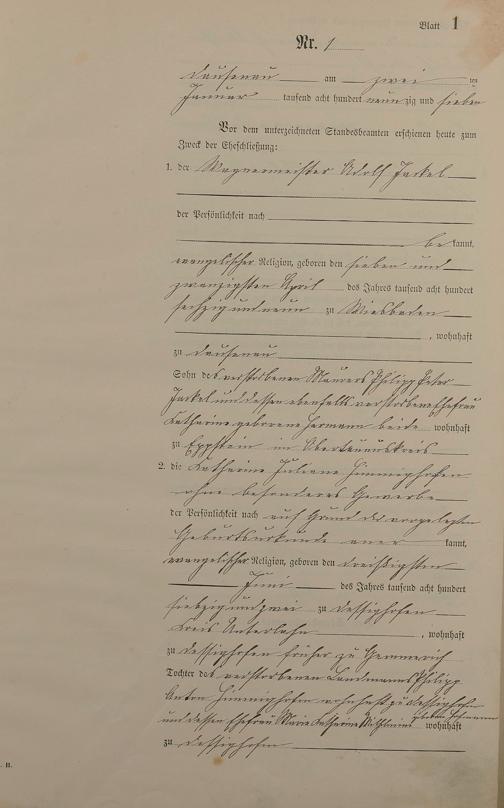 Blatt 1
Nr. 1
Dausenau am zwei ten
Januar tausend acht hundert neun zig und sieben
Vor dem unterzeichneten Standesbeamten erschienen heute zum
Zweck der Eheschließung:
1. der Wagnermeister Adolf Jackel
der Persönlichkeit nach
be kannt,
evangelischer Religion, geboren den sieben und
zwanzigsten April des Jahres tausend acht hundert
sechzig und neun zu Wiesbaden
, wohnhaft
zu Dausenau
Sohn des verstorbenen Maurers Philipp Peter
Jackel und dessen ebenfalls verstorbene Ehefrau
Katharine geborene Hermann beide wohnhaft
zu Eppstein im Obertaunuskreis
2. die Katharine Juliane Himmighofen
ohne besonderes Gewerbe
der Persönlichkeit nach auf Grund der vorgelegten
Geburtsurkunde aner kannt,
evangelischer Religion, geboren den dreißigsten
Juni des Jahres tausend acht hundert
siebzig und zwei zu Dessighofen
Kreis Unterlahn , wohnhaft
zu Dessighofen früher zu Gemmerich
Tochter des verstorbenen Landmanns Philipp
Anton Himmighofen wohnhaft zu Dessighofen
und dessen Ehefrau Marie Katharine Wilhelmine geborene wohnhaft
zu Dessighofen
. B.